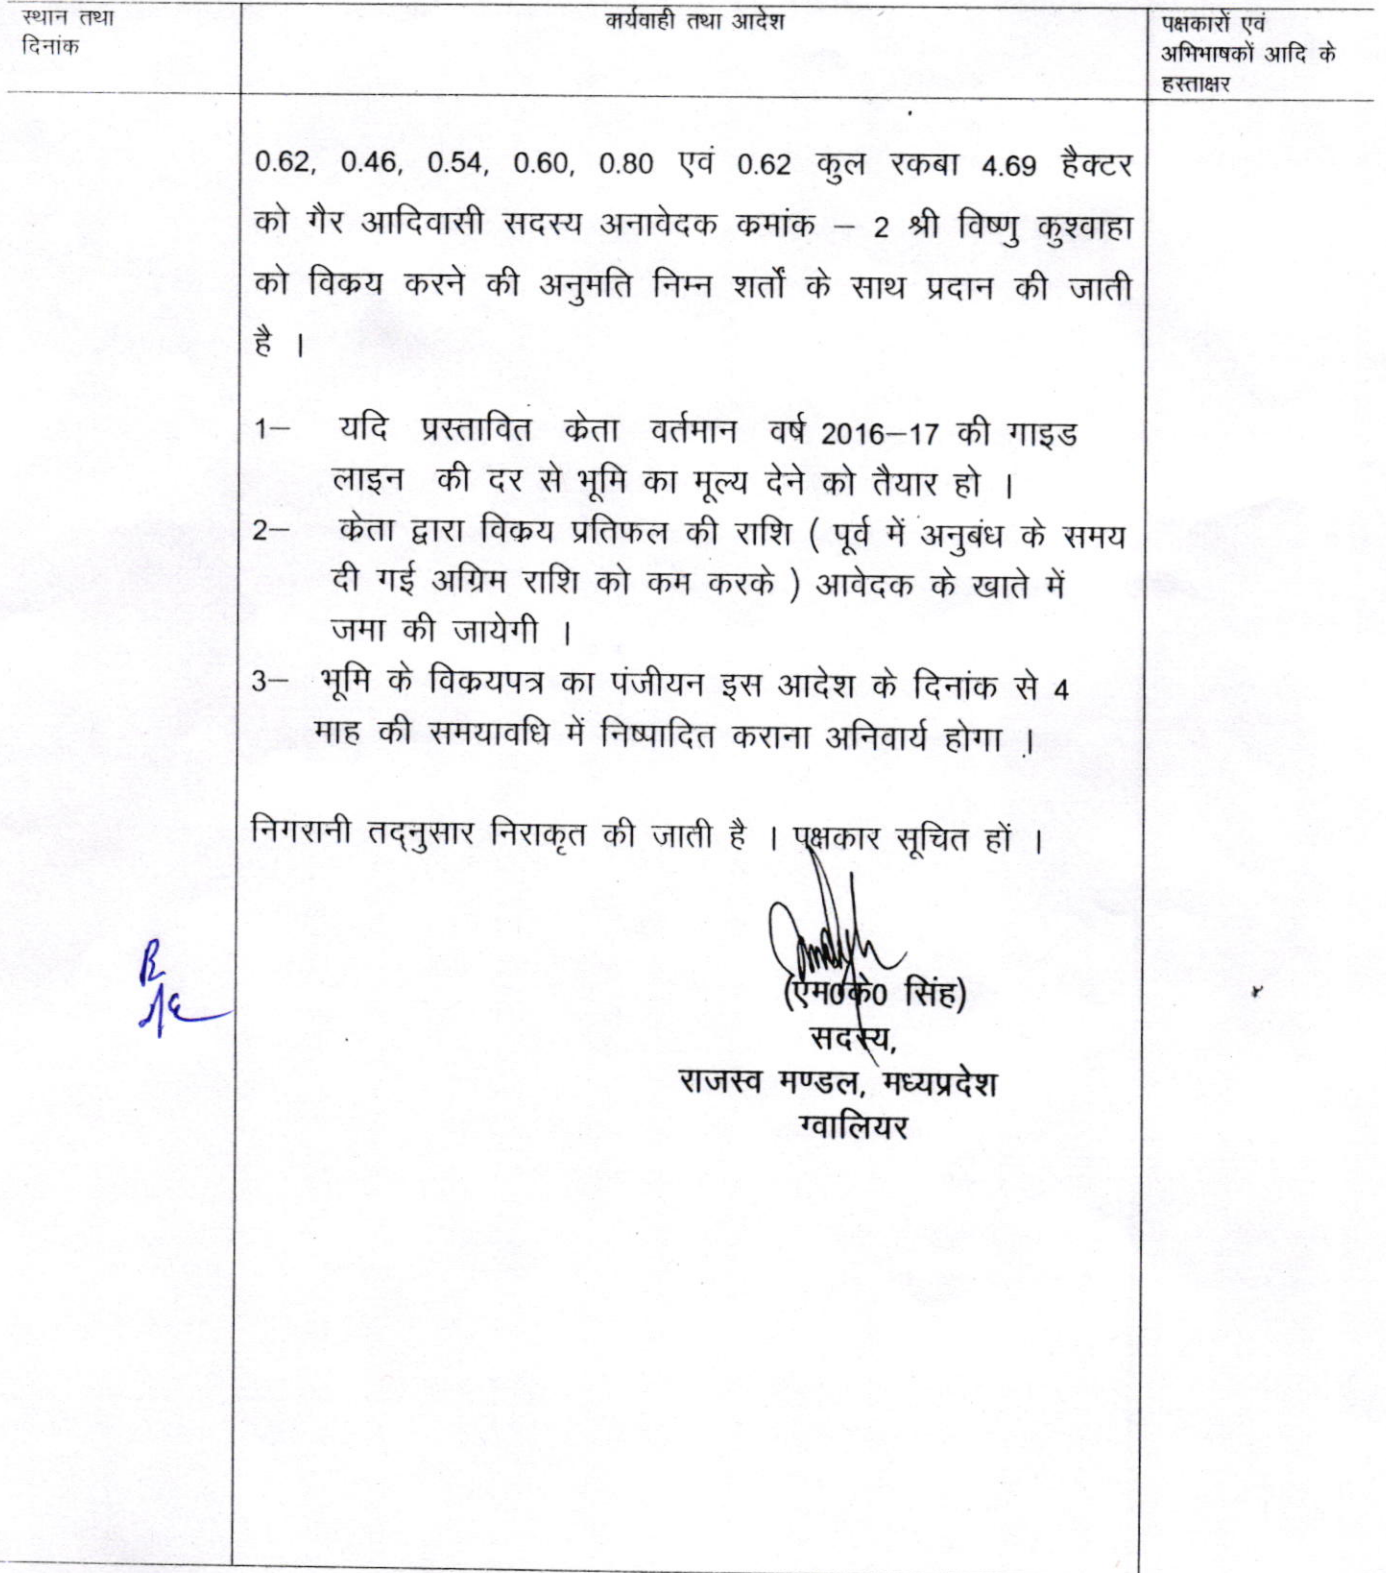 स्थान तथा
दिनांक
कार्यवाही तथा आदेश
पक्षकारों एवं
अभिभाषकों आदि के
हस्ताक्षर
0.62, 0.46, 0.54, 0.60, 0.80 एवं 0.62 कुल रकबा 4.69 हैक्टर
को गैर आदिवासी सदस्य अनावेदक कमांक – 2 श्री विष्णु कुश्वाहा
को विकय करने की अनुमति निम्न शर्तों के साथ प्रदान की जाती
है ।
1– यदि प्रस्तावित केता वर्तमान वर्ष 2016–17 की गाइड
लाइन की दर से भूमि का मूल्य देने को तैयार हो ।
2– केता द्वारा विकय प्रतिफल की राशि ( पूर्व में अनुबंध के समय
दी गई अग्रिम राशि को कम करके ) आवेदक के खाते में
जमा की जायेगी ।
3– भूमि के विकयपत्र का पंजीयन इस आदेश के दिनांक से 4
माह की समयावधि में निष्पादित कराना अनिवार्य होगा ।
निगरानी तद्नुसार निराकृत की जाती है । पक्षकार सूचित हों ।
(एम0के0 सिंह)
सदस्य,
राजस्व मण्डल, मध्यप्रदेश
ग्वालियर